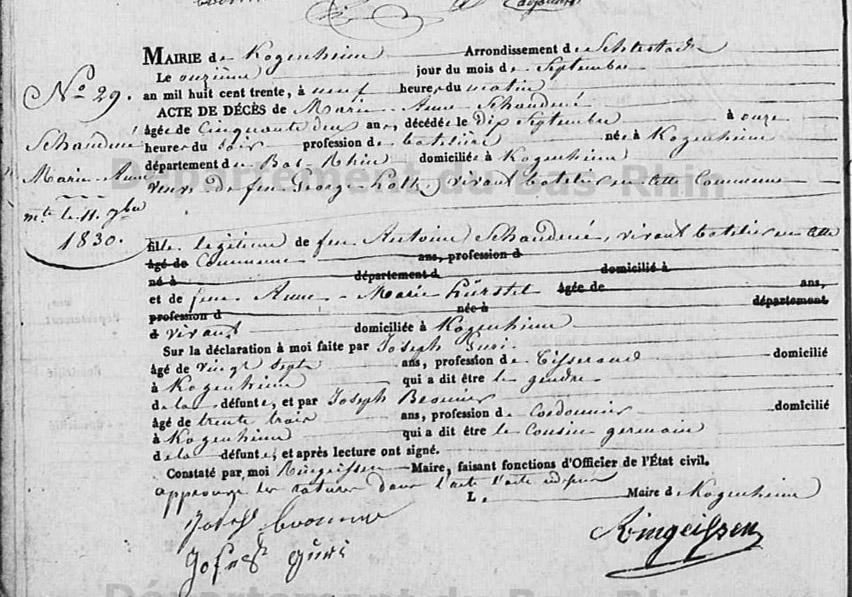 MAIRIE de Kogenheim Arrondissement de Schlestadt
Le onzième jour du mois de Septembre
an mil huit cent trente, à neuf heures du matin
No 29.
ACTE DE DÉCÈS de Marie Anne Schandené
âgée de Cinquante deux ans, décédée le Dix Septembre à onze
Schandené
heures du soir profession de batelière née à Kogenheim
département du Bas-Rhin domiciliée à Kogenheim
Marie-Anne
veuve de feu George Kolb, vivant batelier en cette Commune
mte le 11. 7bre
1830.
fille légitime de feu Antoine Schandené, vivant batelier en cette
âgé de Commune ans, profession d
né à département d domicilié à
et de feue Anne-Marie Kürstel âgée de ans,
profession d née à département
d vivant domiciliée à Kogenheim
Sur la déclaration à moi faite par Joseph Guri.
âgé de vingt sept ans, profession de Tisserand domicilié
à Kogenheim qui a dit être le gendre
de la défunte, et par Joseph
âgé de trente trois ans, profession de Cordonnier domicilié
à Kogenheim qui a dit être le Cousin germain
de la défunte, et après lecture ont signé.
Constaté par moi Ringeissen Maire, faisant fonctions d'Officier de l'État civil.
approuvé les ratures dans l'acte
L. Maire d Kogenheim
Joseph
Ringeissen
Joseph Guri
Département du Bas-Rhin
Département du Bas-Rhin